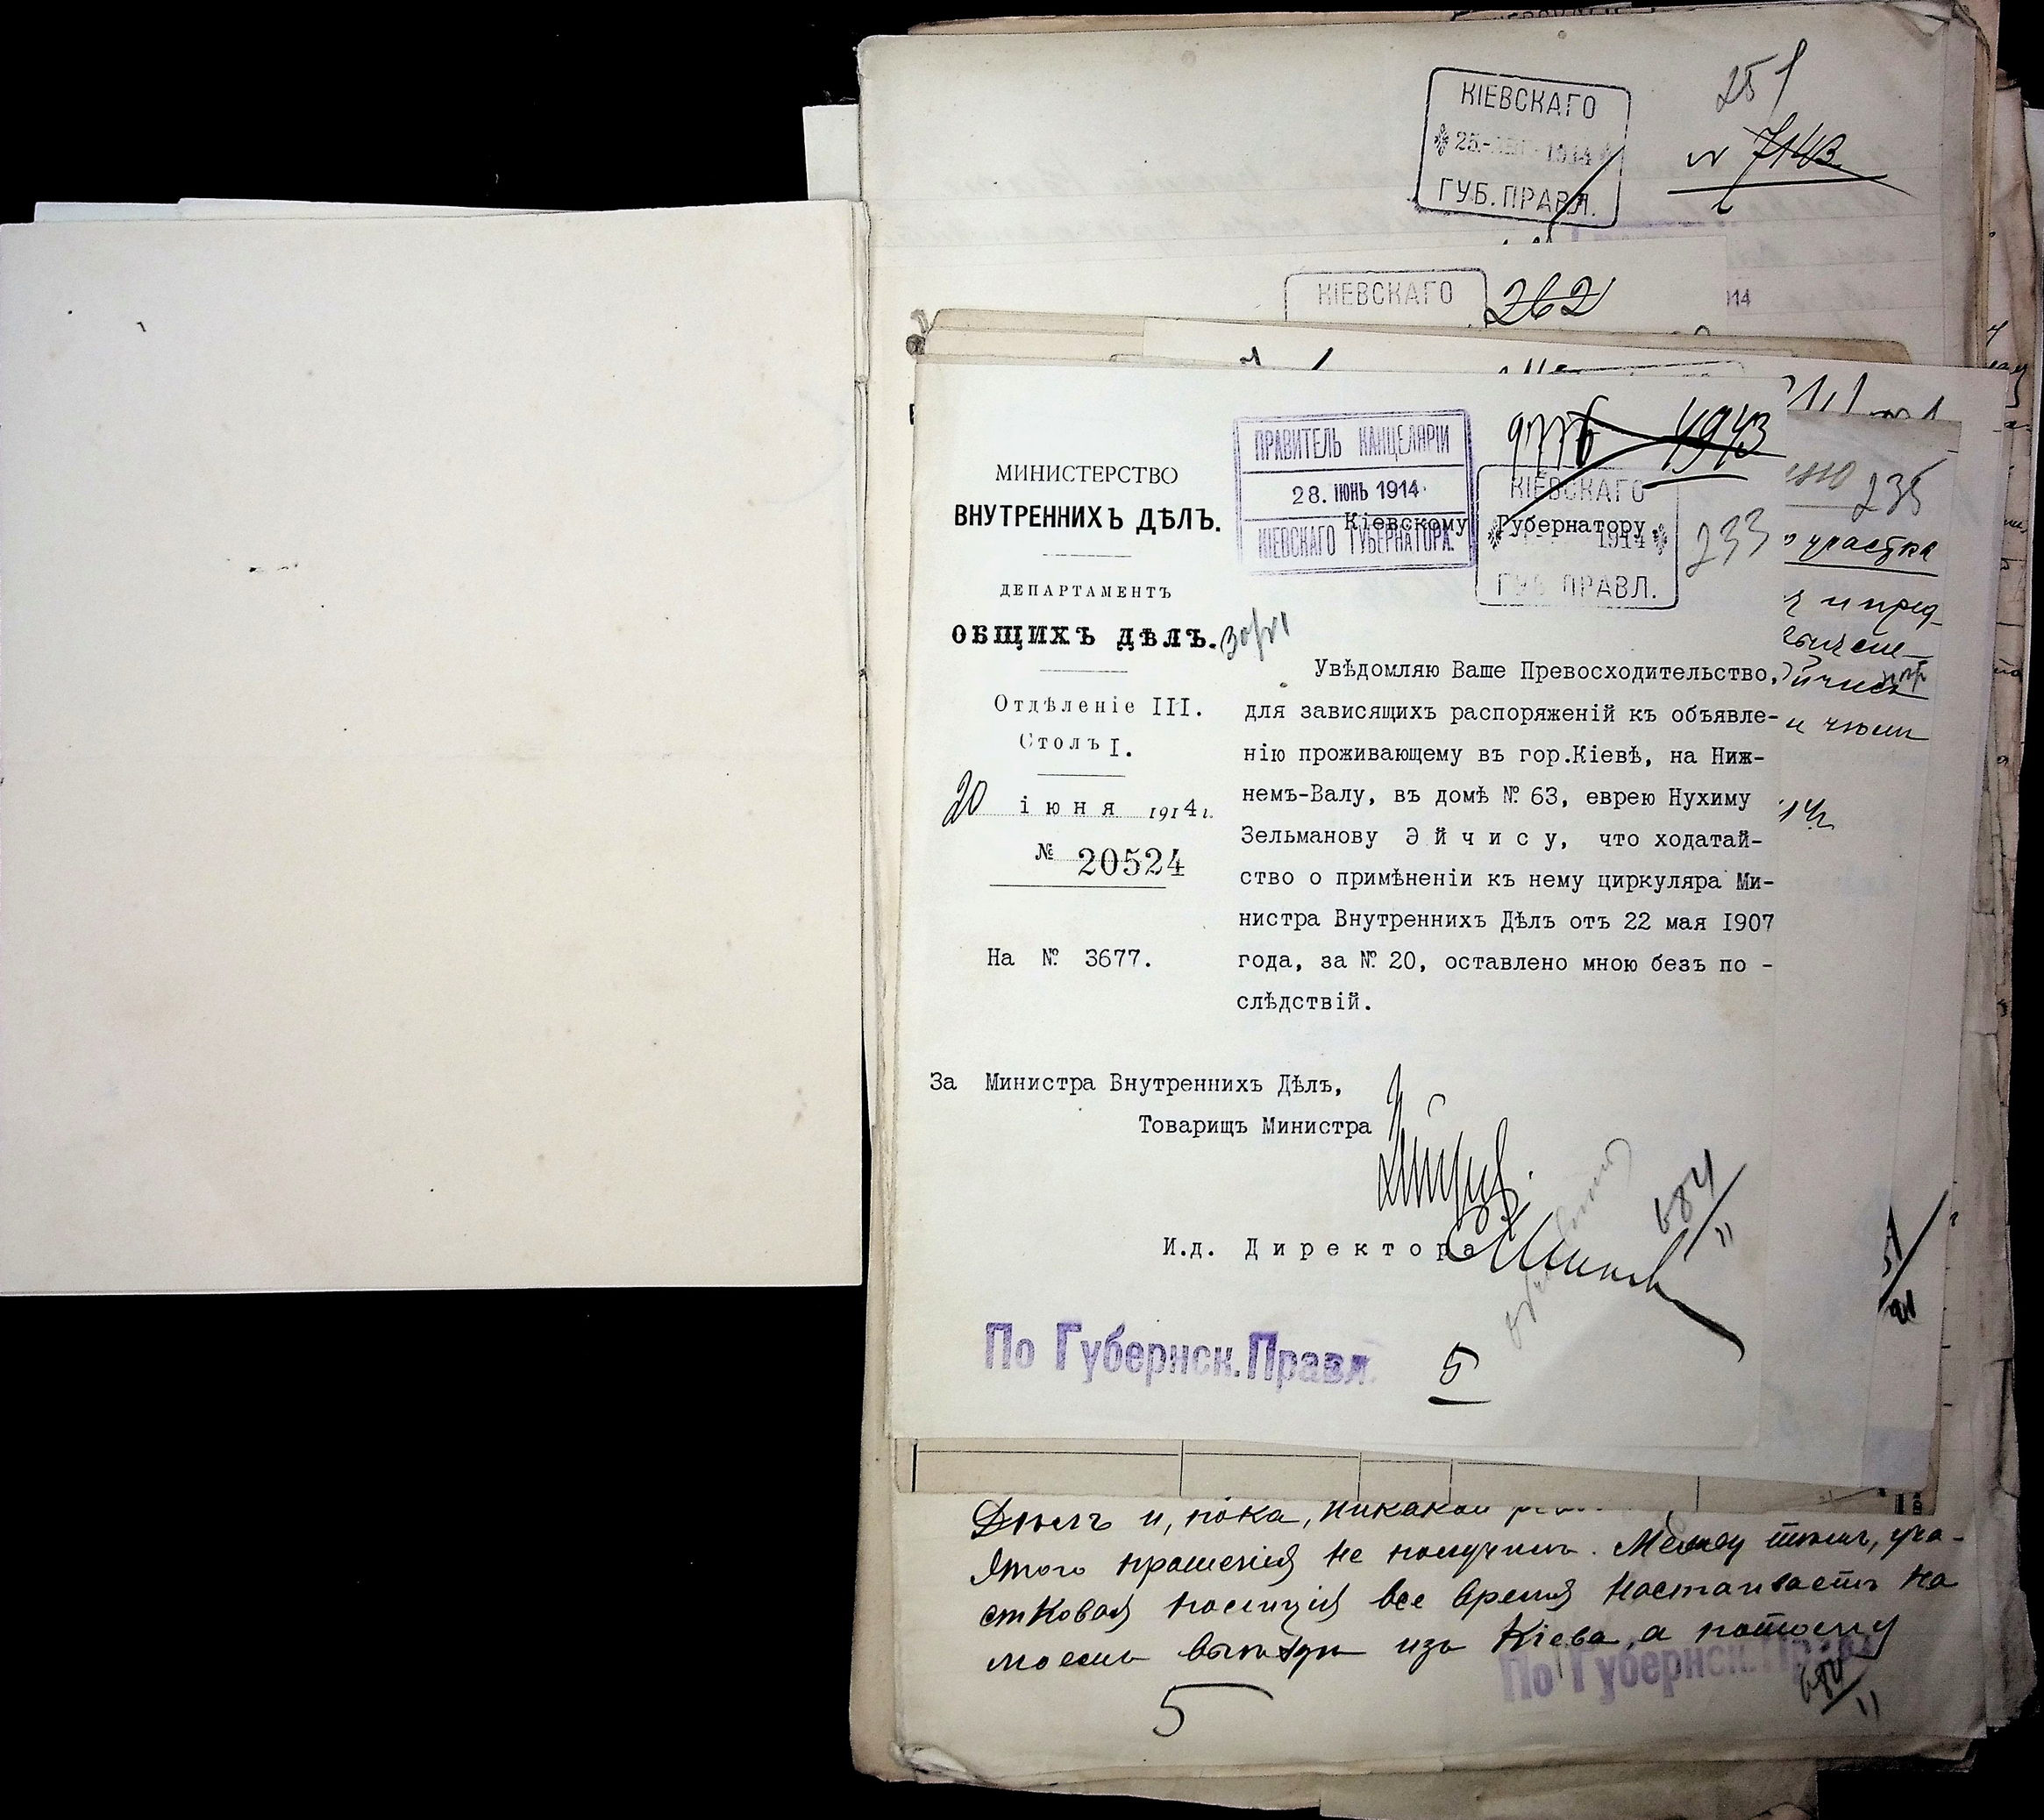 251
КІЕВСКАГО
25. 1914
ГУБ. ПРАВЛ.
№ 7143
КІЕВСКАГО
262
914
9776 4943
ПРАВИТЕЛЬ КАНЦЕЛЯРІИ
28. ІЮНЬ 1914
КІЕВСКАГО ГУБЕРНАТОРА.
КІЕВСКАГО
1914
ГУБ ПРАВЛ.
233
235
участка
МИНИСТЕРСТВО
ВНУТРЕННИХЪ ДѢЛЪ.
ДЕПАРТАМЕНТЪ
ОБЩИХЪ ДѢЛЪ.
30/VI
Отдѣленіе III.
Столъ I.
20 іюня 1914 г.
№ 20524
На № 3677.
Кіевскому Губернатору
Увѣдомляю Ваше Превосходительство,
для зависящихъ распоряженій къ объявле-
нію проживающему въ гор.Кіевѣ, на Ниж-
немъ-Валу, въ домѣ № 63, еврею Нухиму
Зельманову Эйчису, что ходатай-
ство о примѣненіи къ нему циркуляра Ми-
нистра Внутреннихъ Дѣлъ отъ 22 мая 1907
года, за № 20, оставлено мною безъ по -
слѣдствій.
За Министра Внутреннихъ Дѣлъ,
Товарищъ Министра
И.д. Директора
684/11
По Губернск.Правл.
5
и пред-
и чьем
14г.
Дѣлъ и, пока, никакой
этого прошенія не получилъ. Между тѣмъ, уча-
стковая полиція все время настаиваетъ на
моемъ выѣздѣ изъ Кіева, а потому
По Губернск. Правл
684/11
5